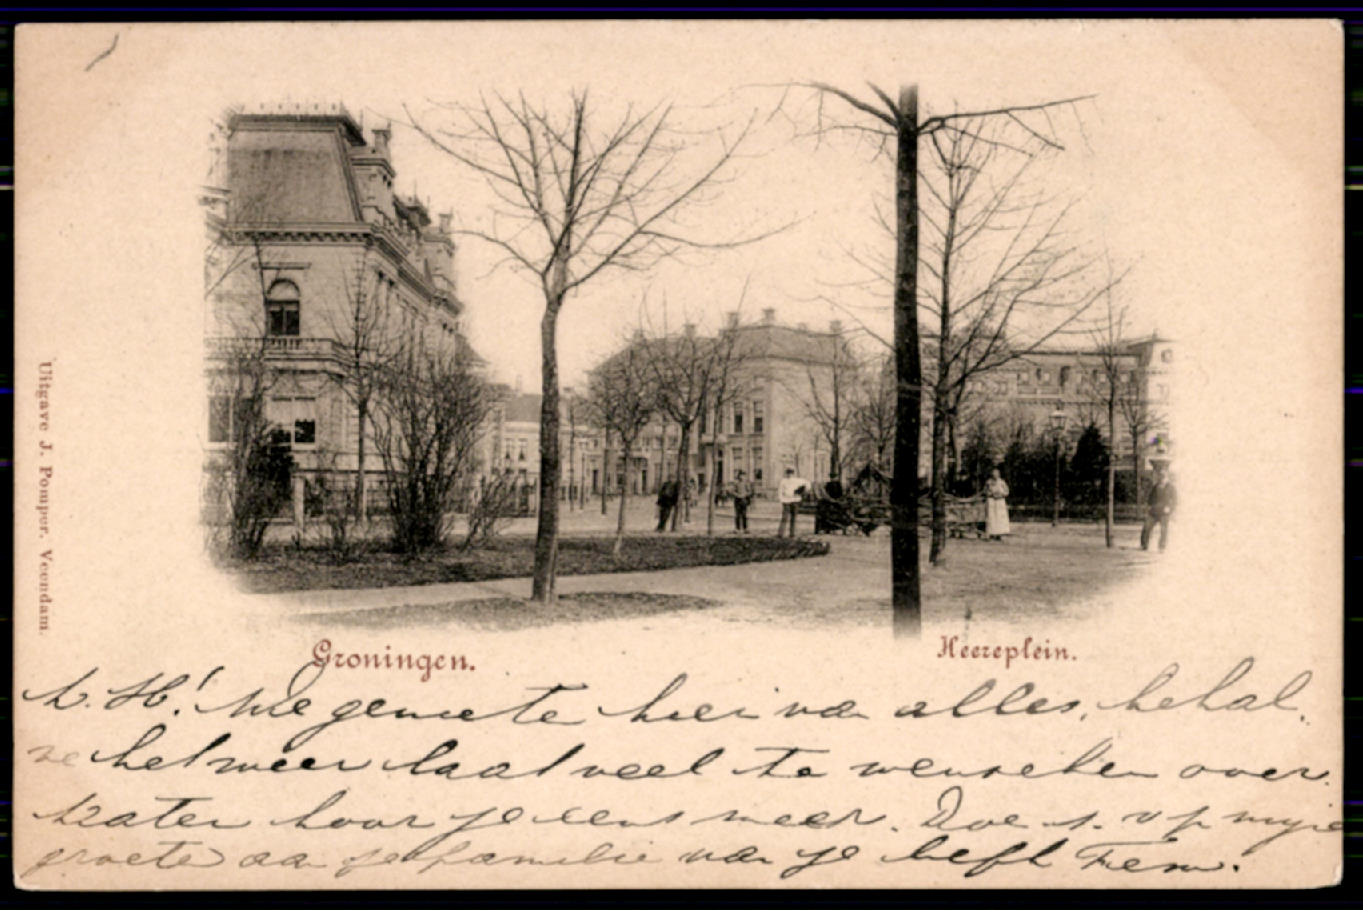 Uitgave J. Pomper. Veendam.
Groningen.
Heereplein.
L. H! We genieten hier van alles, behal
ve het weer laat veel te wenschen over.
Later hoor je eens meer. Doe s. v p mijne
groete aan je familie van je liefh